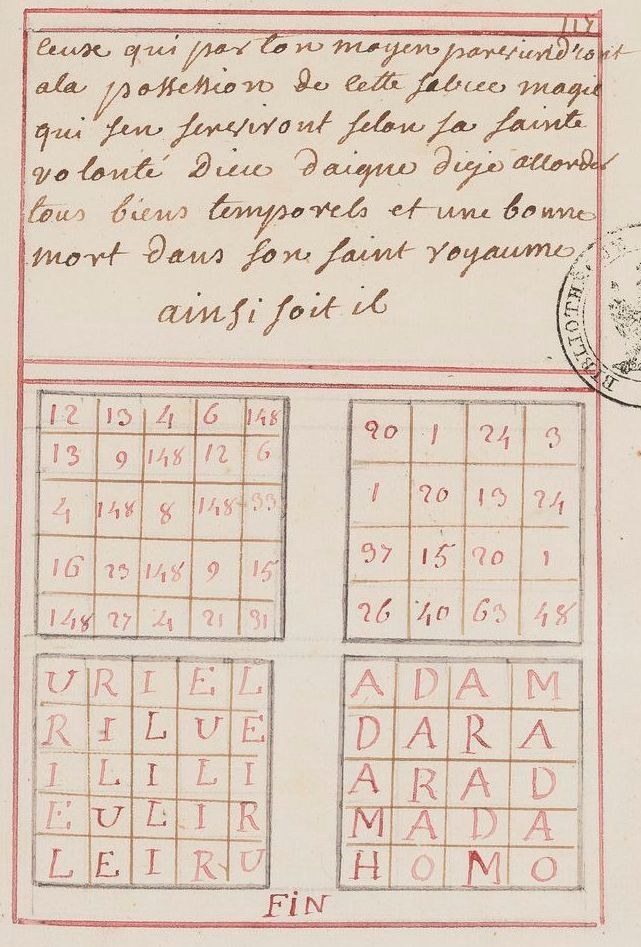 ceuse qui par ton moyen parviendront
ala possession de cette sacree magie
qui sen serviront selon sa sainte
volonté Dieu daigne accorder
tous biens temporels et une bonne
mort dans son saint royaume
ainsi soit il
12 13 4 6 148
13 9 148 12 6
4 148 8 148 33
16 23 148 9 15
148 27 4 21 31
20 1 24 3
1 20 13 24
37 15 20 1
26 40 63 48
U R I E L
R I L U E
I L I L I
E U L I R
L E I R U
A D A M
D A R A
A R A D
M A D A
H O M O
FIN